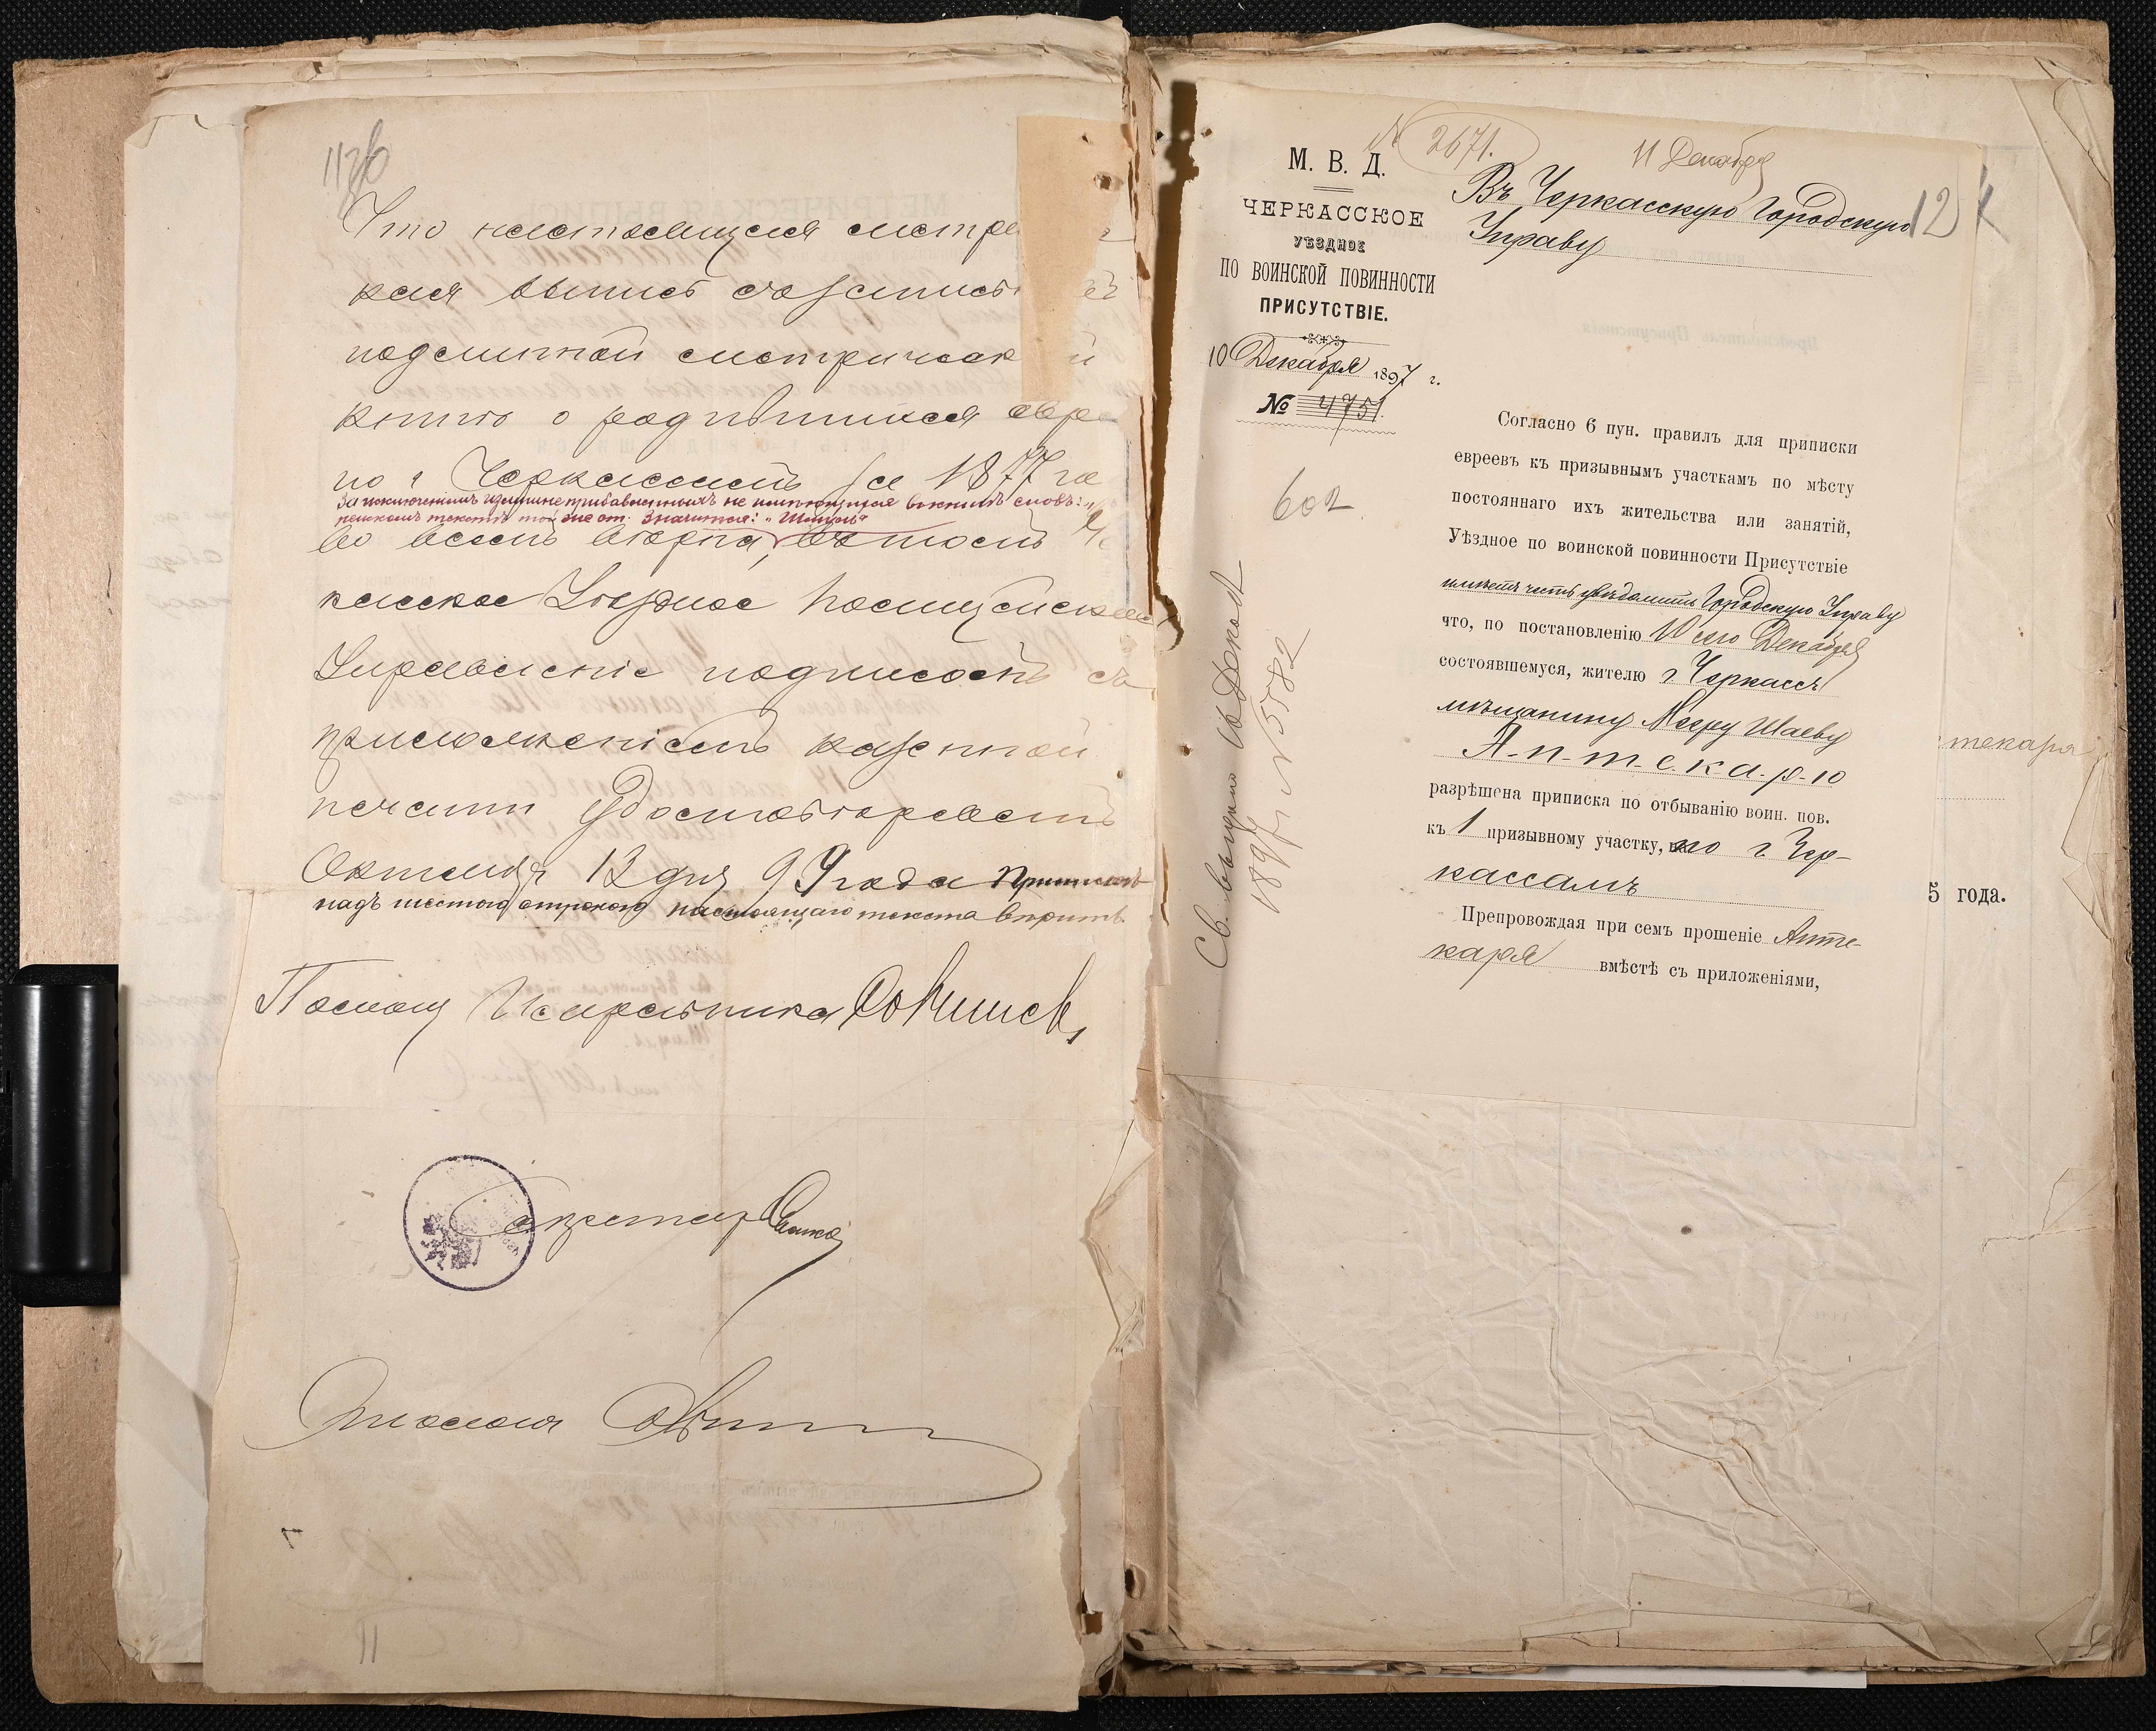 Что настоящая метри
кая выпись
подлинной метрическ й
книгою о родившихся евре
по г Черкассамъ за 1877 го
За исключеніемъ излишне прибавленныхъ не имѣющихся въ книгѣ словъ:
текстѣ тоже от. значится: "Шмуль"
во всемъ вѣрна, въ томъ Че
касское Уѣздное Полицейское
Управленіе подписомъ съ
приложеніемъ казенной
печати удостовѣряетъ
Октября 13 дня 99 года Приписан
надъ шестою строкою настоящаго текста вѣрить
Помощ Исправника
Секретарь
11
М. В. Д.
ЧЕРКАССКОЕ
УѢЗДНОЕ
ПО ВОИНСКОЙ ПОВИННОСТИ
ПРИСУТСТВІЕ.
10 Декабря 1897 г.
№ 4751.
602
№ 2671.
11 Декабря
Въ Черкасскую Городскую
Управу
12
Согласно 6 пун. правилъ для приписки
евреевъ къ призывнымъ участкамъ по мѣсту
постояннаго ихъ жительства или занятій,
Уѣздное по воинской повинности Присутствіе
имѣетъ честь увѣдомить Городскую Управу
что, по постановленію 10 сего Декабря
состоявшемуся, жителю г Черкассъ
мѣщанину Мееру Шаеву
А-п-т-е-к-а-р-ю
разрѣшена приписка по отбыванію воин. пов.
къ 1 призывному участку, по г Чер-
кассамъ
Препровождая при семъ прошеніе Апте-
каря вмѣстѣ съ приложеніями,
Св. выдано 16 Декаб
1897 г № 5582
текаря
5 года.